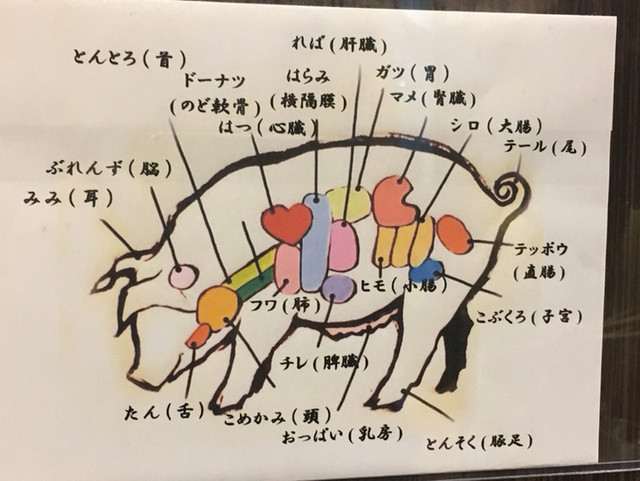 れば(肝臓)
とんとろ(首)
ドーナツ
(のど軟骨)
はらみ
(横隔膜)
ガツ(胃)
マメ(腎臓)
はつ(心臓)
シロ(大腸)
テール(尾)
ぶれんず(脳)
みみ(耳)
テッポウ
(直腸)
ヒモ(小腸)
フワ(肺)
こぶくろ(子宮)
チレ(脾臓)
たん(舌)
こめかみ(頭)
おっぱい(乳房)
とんそく(豚足)